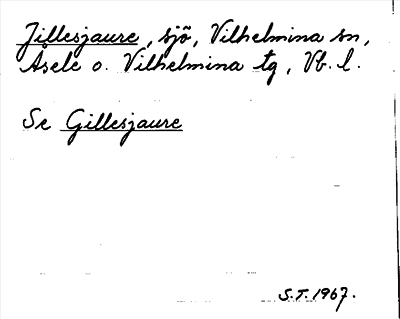 Jillesjaure, sjö, Vilhelmina sn,
Åsele o. Vilhelmina tg, Vb. l.
Se Gillesjaure
S.T. 1967.